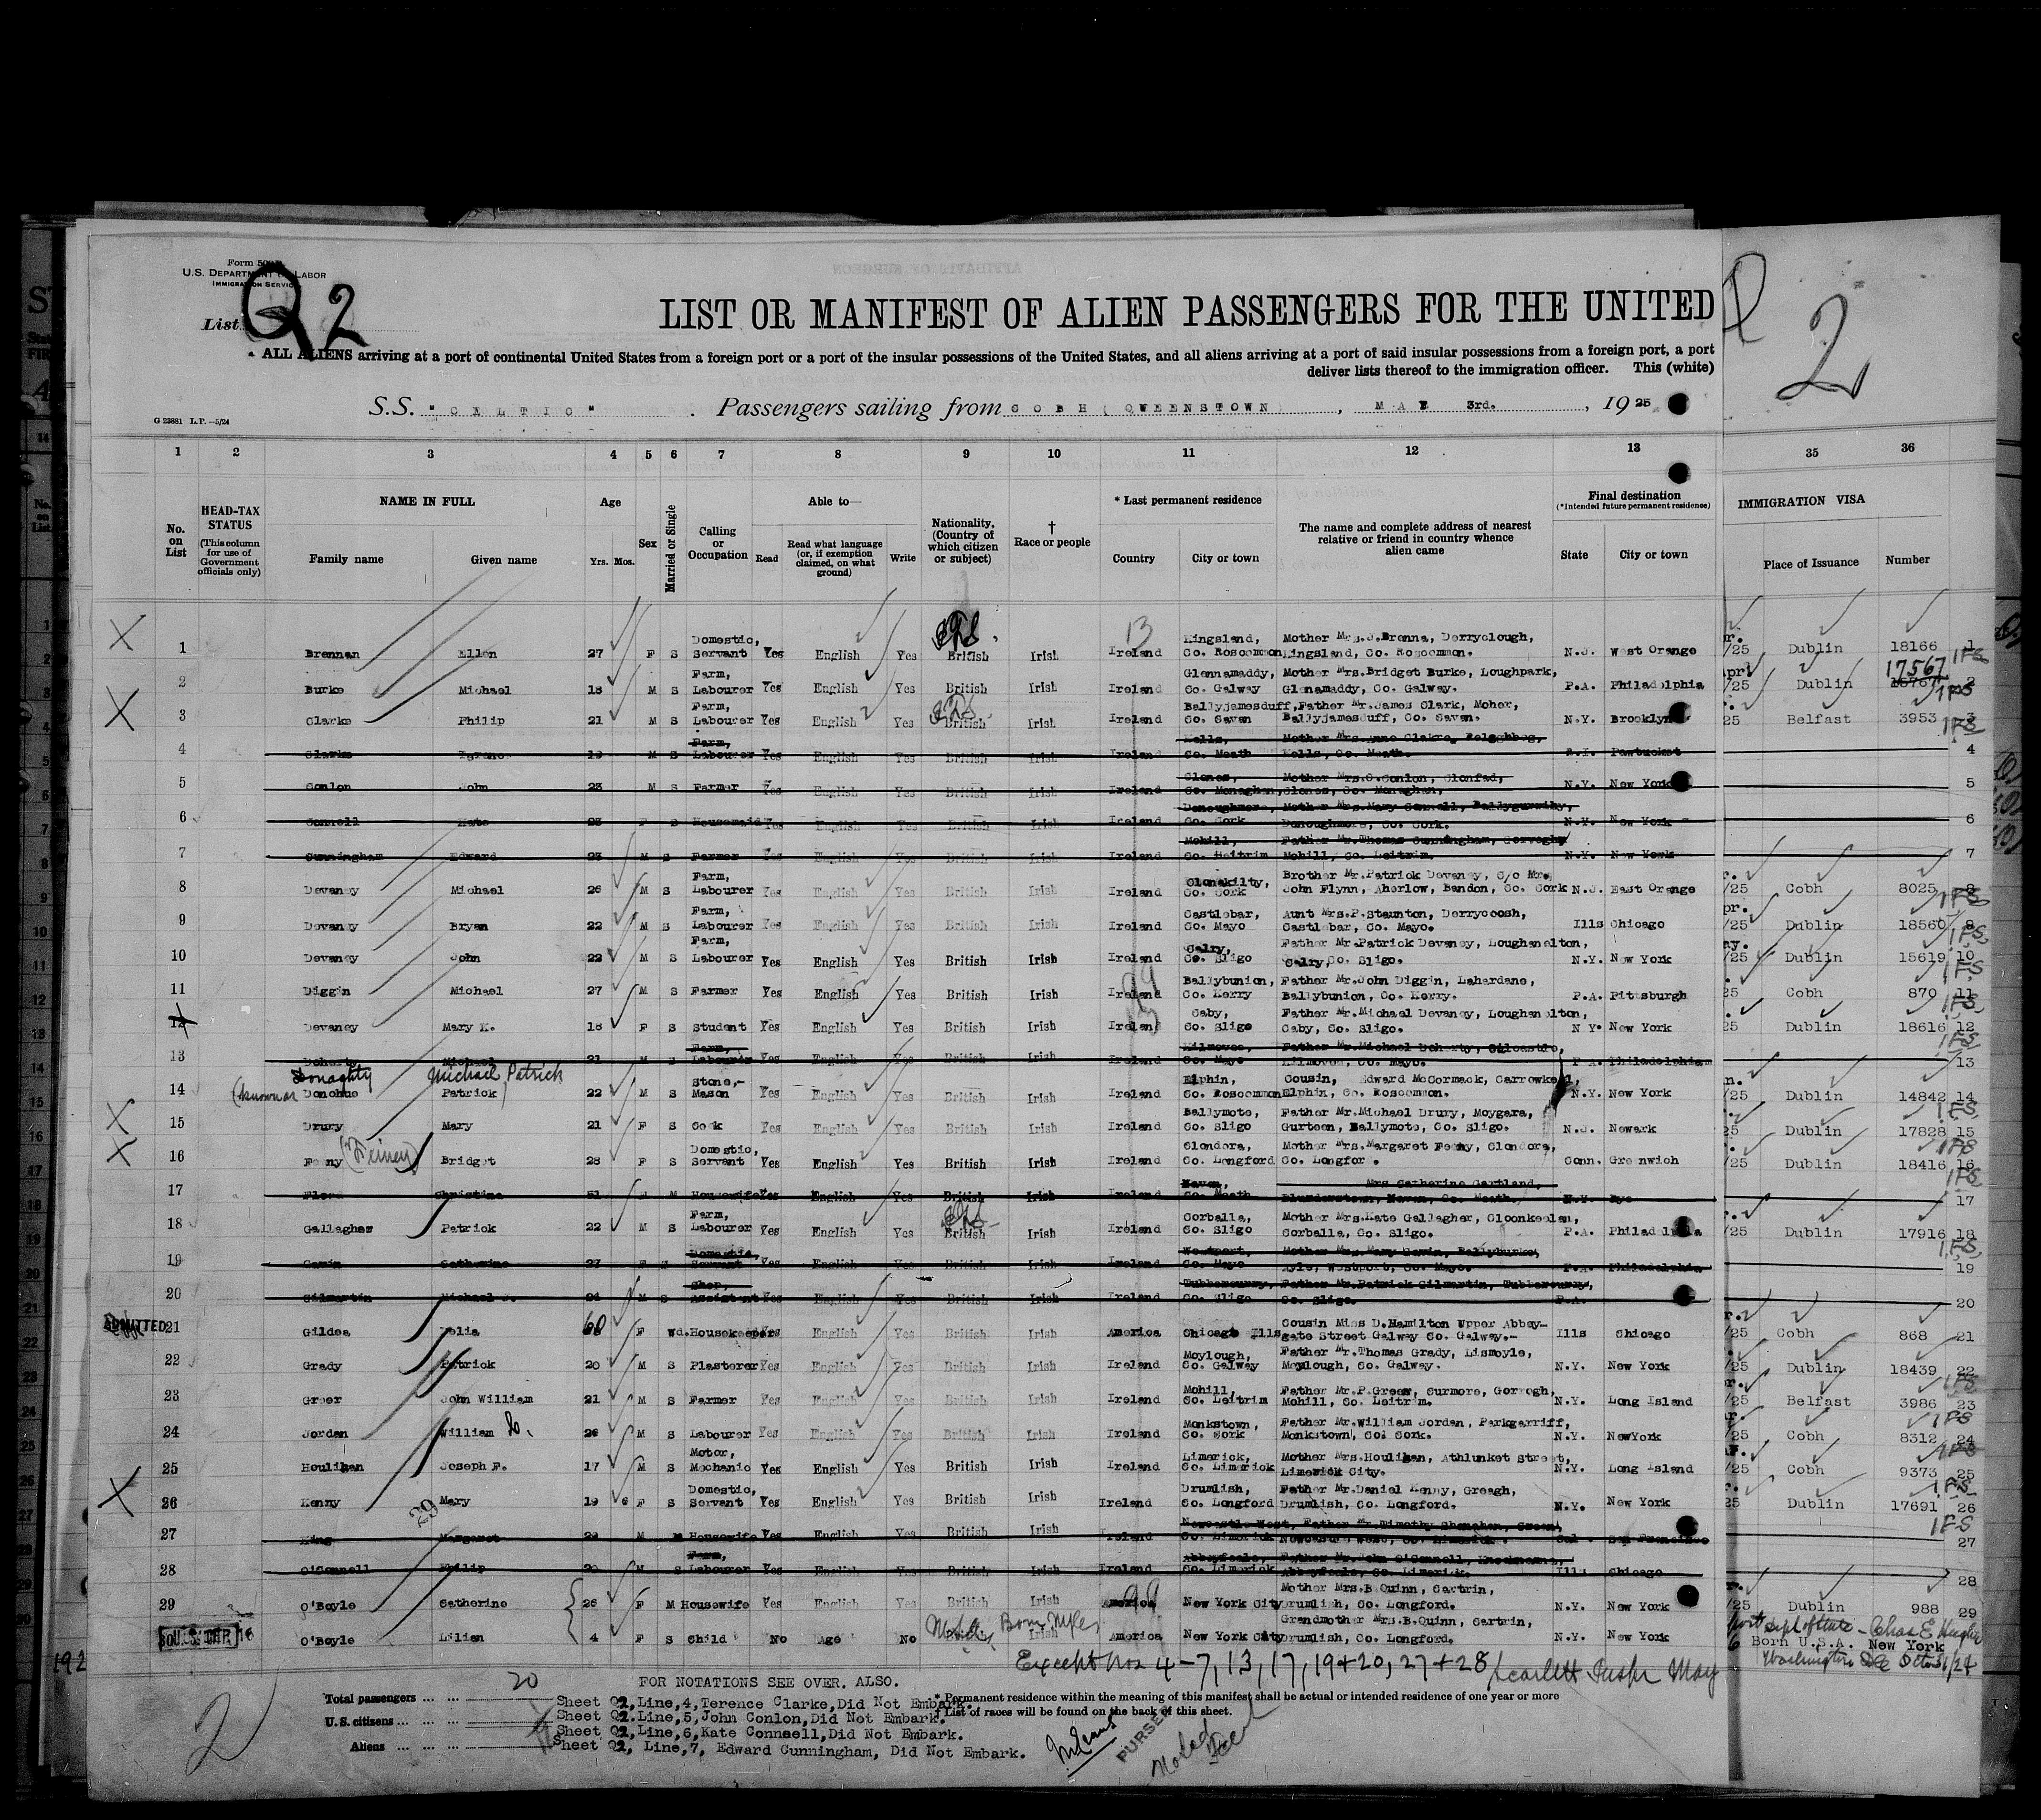 Form 500
U.S. DEPARTMENT OF LABOR
IMMIGRATION SERVICE
List Q2
LIST OR MANIFEST OF ALIEN PASSENGERS FOR THE UNITED
2
* ALL ALIENS arriving at a port of continental United States from a foreign port or a port of the insular possessions of the United States, and all aliens arriving at a port of said insular possessions from a foreign port, a port
deliver lists thereof to the immigration officer. This (white)
S.S. "CELTIC". Passengers sailing from COBH (QUEENSTOWN), MAY 3rd., 1925
G 23881 L.P.—5/24
1 2 3 4 5 6 7 8 9 10 11 12 13 35 36
No. on List
HEAD-TAX STATUS (This column for use of Government officials only)
NAME IN FULL
Family name Given name
Age
Yrs. Mos.
Sex
Married or Single
Calling or Occupation
Able to—
Read Read what language (or, if exemption claimed, on what ground) Write
Nationality. (Country of which citizen or subject)
† Race or people
* Last permanent residence
Country City or town
The name and complete address of nearest relative or friend in country whence alien came
Final destination
(*Intended future permanent residence)
State City or town
IMMIGRATION VISA
Place of Issuance Number
1 Brennan Ellen 27 F S Domestic, Servant Yes English Yes British Irish Ireland Kingsland, Co. Roscommon Mother Mrs.J.Brenna, Derryclough, Kingsland, Co. Roscommon. N.J. West Orange /25 Dublin 18166 1
2 Burke Michael 18 M S Farm, Labourer Yes English Yes British Irish Ireland Glennamaddy, Co. Galway Mother Mrs.Bridget Burke, Loughpark, Glenamaddy, Co. Galway. P.A. Philadelphia /25 Dublin 17567 2
3 Clarke Philip 21 M S Farm, Labourer Yes English Yes British Irish Ireland Ballyjamesduff, Co. Savan Father Mr.James Clark, Moher, Ballyjamesduff, Co. Savan. N.Y. Brooklyn 25 Belfast 3953 3
4 Clarke Terence 19 M S Farm, Labourer Yes English Yes British Irish Ireland Kells, Co. Meath Mother Mrs.Anne Clakre, Kells, Co. Meath. R.I. Pawtucket 4
5 Conlon John 23 M S Farmer Yes English Yes British Irish Ireland Clones, Co. Monaghan, Mother Mrs.C.Conlon, Clonfad, Clones, Co. Monaghan, N.Y. New York 5
6 Connell Kate 23 F S Housemaid Yes English Yes British Irish Ireland Donoughmore, Co. Cork Mother Mrs.Mary Connell, Donoughmore, Co. Cork. N.Y. New York 6
7 Cunningham Edward 23 M S Farmer Yes English Yes British Irish Ireland Mohill, Co. Leitrim Father Mr.Thomas Cunningham, Mohill, Co. Leitrim. N.Y. New York 7
8 Devaney Michael 26 M S Farm, Labourer Yes English Yes British Irish Ireland Clonakilty, Co. Cork Brother Mr.Patrick Devaney, C/o Mrs, John Flynn, Aherlow, Bandon, Co. Cork N.J. East Orange /25 Cobh 8025 8
9 Devaney Bryan 22 M S Farm, Labourer Yes English Yes British Irish Ireland Castlebar, Co. Mayo Aunt Mrs.P.Staunton, Derrycoosh, Castlebar, Co. Mayo. Ills Chicago /25 Dublin 18560 9
10 Devaney John 22 M S Farm, Labourer Yes English Yes British Irish Ireland Calry, Co. Sligo Father Mr.Patrick Devaney, Loughanelton, Calry, Co. Sligo. N.Y. New York /25 Dublin 15619 10
11 Diggin Michael 27 M S Farmer Yes English Yes British Irish Ireland Ballybunion, Co. Kerry Father Mr.John Diggin, Lahardane, Ballybunion, Co. Kerry. P.A. Pittsburgh 25 Cobh 870 11
12 Devaney Mary K. 18 F S Student Yes English Yes British Irish Ireland Caby, Co. Sligo Father Mr.Michael Devaney, Loughanelton, Caby, Co. Sligo. N Y. New York 25 Dublin 18616 12
13 Doherty Michael 21 M S Farm, Labourer Yes English Yes British Irish Ireland Kilmovee, Co. Mayo Father Mr.Michael Doherty, Kilmovee, Co. Mayo. P.A. Philadelphia 13
Donaghty Michael Patrick
14 (known as Donohue Patrick) 22 M S Stone,- Mason Yes English Yes British Irish Ireland Elphin, Co. Roscommon Cousin, Edward McCormack, Carrowkeel, Elphin, Co. Roscommon. N.Y. New York /25 Dublin 14842 14
15 Drury Mary 21 F S Cook Yes English Yes British Irish Ireland Ballymote, Co. Sligo Father Mr.Michael Drury, Moygara, Gurteen, Ballymote, Co. Sligo. N.J. Newark 25 Dublin 17828 15
16 Feeny (Feiney) Bridget 28 F S Domestic, Servant Yes English Yes British Irish Ireland Clondora, Co. Longford Mother Mrs.Margaret Feeny, Clondora, Co. Longfor. Conn. Greenwich /25 Dublin 18416 16
17 Flood Christina 51 F M Housewife Yes English Yes British Irish Ireland Navan, Co. Meath Mrs Catherine Gartland, Navan, Co. Meath. N.Y. Rye 17
18 Gallagher Patrick 22 M S Farm, Labourer Yes English Yes British Irish Ireland Corballa, Co. Sligo Mother Mrs.Kate Gallagher, Cloonkeelan, Corballa, Co. Sligo. P.A. Philadelphia /25 Dublin 17916 18
19 Gavin Catherine 27 F S Domestic, Servant Yes English Yes British Irish Ireland Westport, Co. Mayo Mother Mrs.Mary Gavin, Ballyburke, Ayle, Westport, Co. Mayo. P.A. Philadelphia 19
20 Gilmartin Michael J. 21 M S Shop, Assistant Yes English Yes British Irish Ireland Tubbercurry, Co. Sligo Father Mr.Patrick Gilmartin, Tubbercurry, Co. Sligo. P.A. 20
ADMITTED 21 Gildea Delia 60 F Wd. Housekeeper Yes English Yes British Irish America Chicago Ills Cousin Miss D.Hamilton Upper Abbey-gate Street Galway Co. Galway.- Ills Chicago /25 Cobh 868 21
22 Grady Patrick 20 M S Plasterer Yes English Yes British Irish Ireland Moylough, Co. Galway Father Mr.Thomas Grady, Lismoyle, Moylough, Co. Galway. N.Y. New York /25 Dublin 18439 22
23 Greer John William 21 M S Farmer Yes English Yes British Irish Ireland Mohill, Co. Leitrim Father Mr.P.Greer, Curmore, Gorrogh, Mohill, Co. Leitrim. N.Y. Long Island /25 Belfast 3986 23
24 Jordan William 26 M S Labourer Yes English Yes British Irish Ireland Monkstown, Co. Cork Father Mr.William Jordan, Parkgarriff, Monkstown, Co. Cork. N.Y. NewYork /25 Cobh 8312 24
25 Houlihan Joseph F. 17 M S Motor, Mechanic Yes English Yes British Irish Ireland Limerick, Co. Limerick Mother Mrs.Houlihan, Athlunket Street, Limerick City. N.Y. Long Island /25 Cobh 9373 25
26 Kenny Mary 19 6 F S Domestic, Servant Yes English Yes British Irish Ireland Drumlish, Co. Longford Father Mr.Daniel Kenny, Greagh, Drumlish, Co. Longford. N.Y. New York 25 Dublin 17691 26
27 King Margaret 29 M Housewife Yes English Yes British Irish Ireland Newcastle West, Co. Limerick Father Mr.Timothy Shanahan, Newcastle West, Co. Limerick. Cal. San Francisco 27
28 O'Connell Philip 20 M S Farm, Labourer Yes English Yes British Irish Ireland Abbeyfeale, Co. Limerick Father Mr.John O'Connell, Abbeyfeale, Co. Limerick. Ills Chicago 28
29 O'Boyle Catherine 26 F M Housewife Yes English Yes British Irish America New York City Mother Mrs.B Quinn, Cartrin, Drumlish, Co. Longford. N.Y. New York /25 Dublin 988 29
30 U.S. O'Boyle Lilian 4 F S Child No Age No British Irish America New York City Grandmother Mrs.B.Quinn, Cartrin, Drumlish, Co. Longford. N.Y. New York Born U.S.A. New York
Dept of State - Chas E Hughes
Washington DC Oct 31/24
Except nos 4-7, 13, 17, 19+20, 27+28
20
FOR NOTATIONS SEE OVER. ALSO.
Total passengers
U.S. citizens
Aliens
Sheet Q2,Line,4,Terence Clarke,Did Not Embark.
Sheet Q2.Line,5,John Conlon,Did Not Embark.
Sheet Q2,Line,6,Kate Connaell,Did Not Embark.
Sheet Q2, Line,7, Edward Cunningham, Did Not Embark.
* Permanent residence within the meaning of this manifest shall be actual or intended residence of one year or more
† List of races will be found on the back of this sheet.
PURSER
2